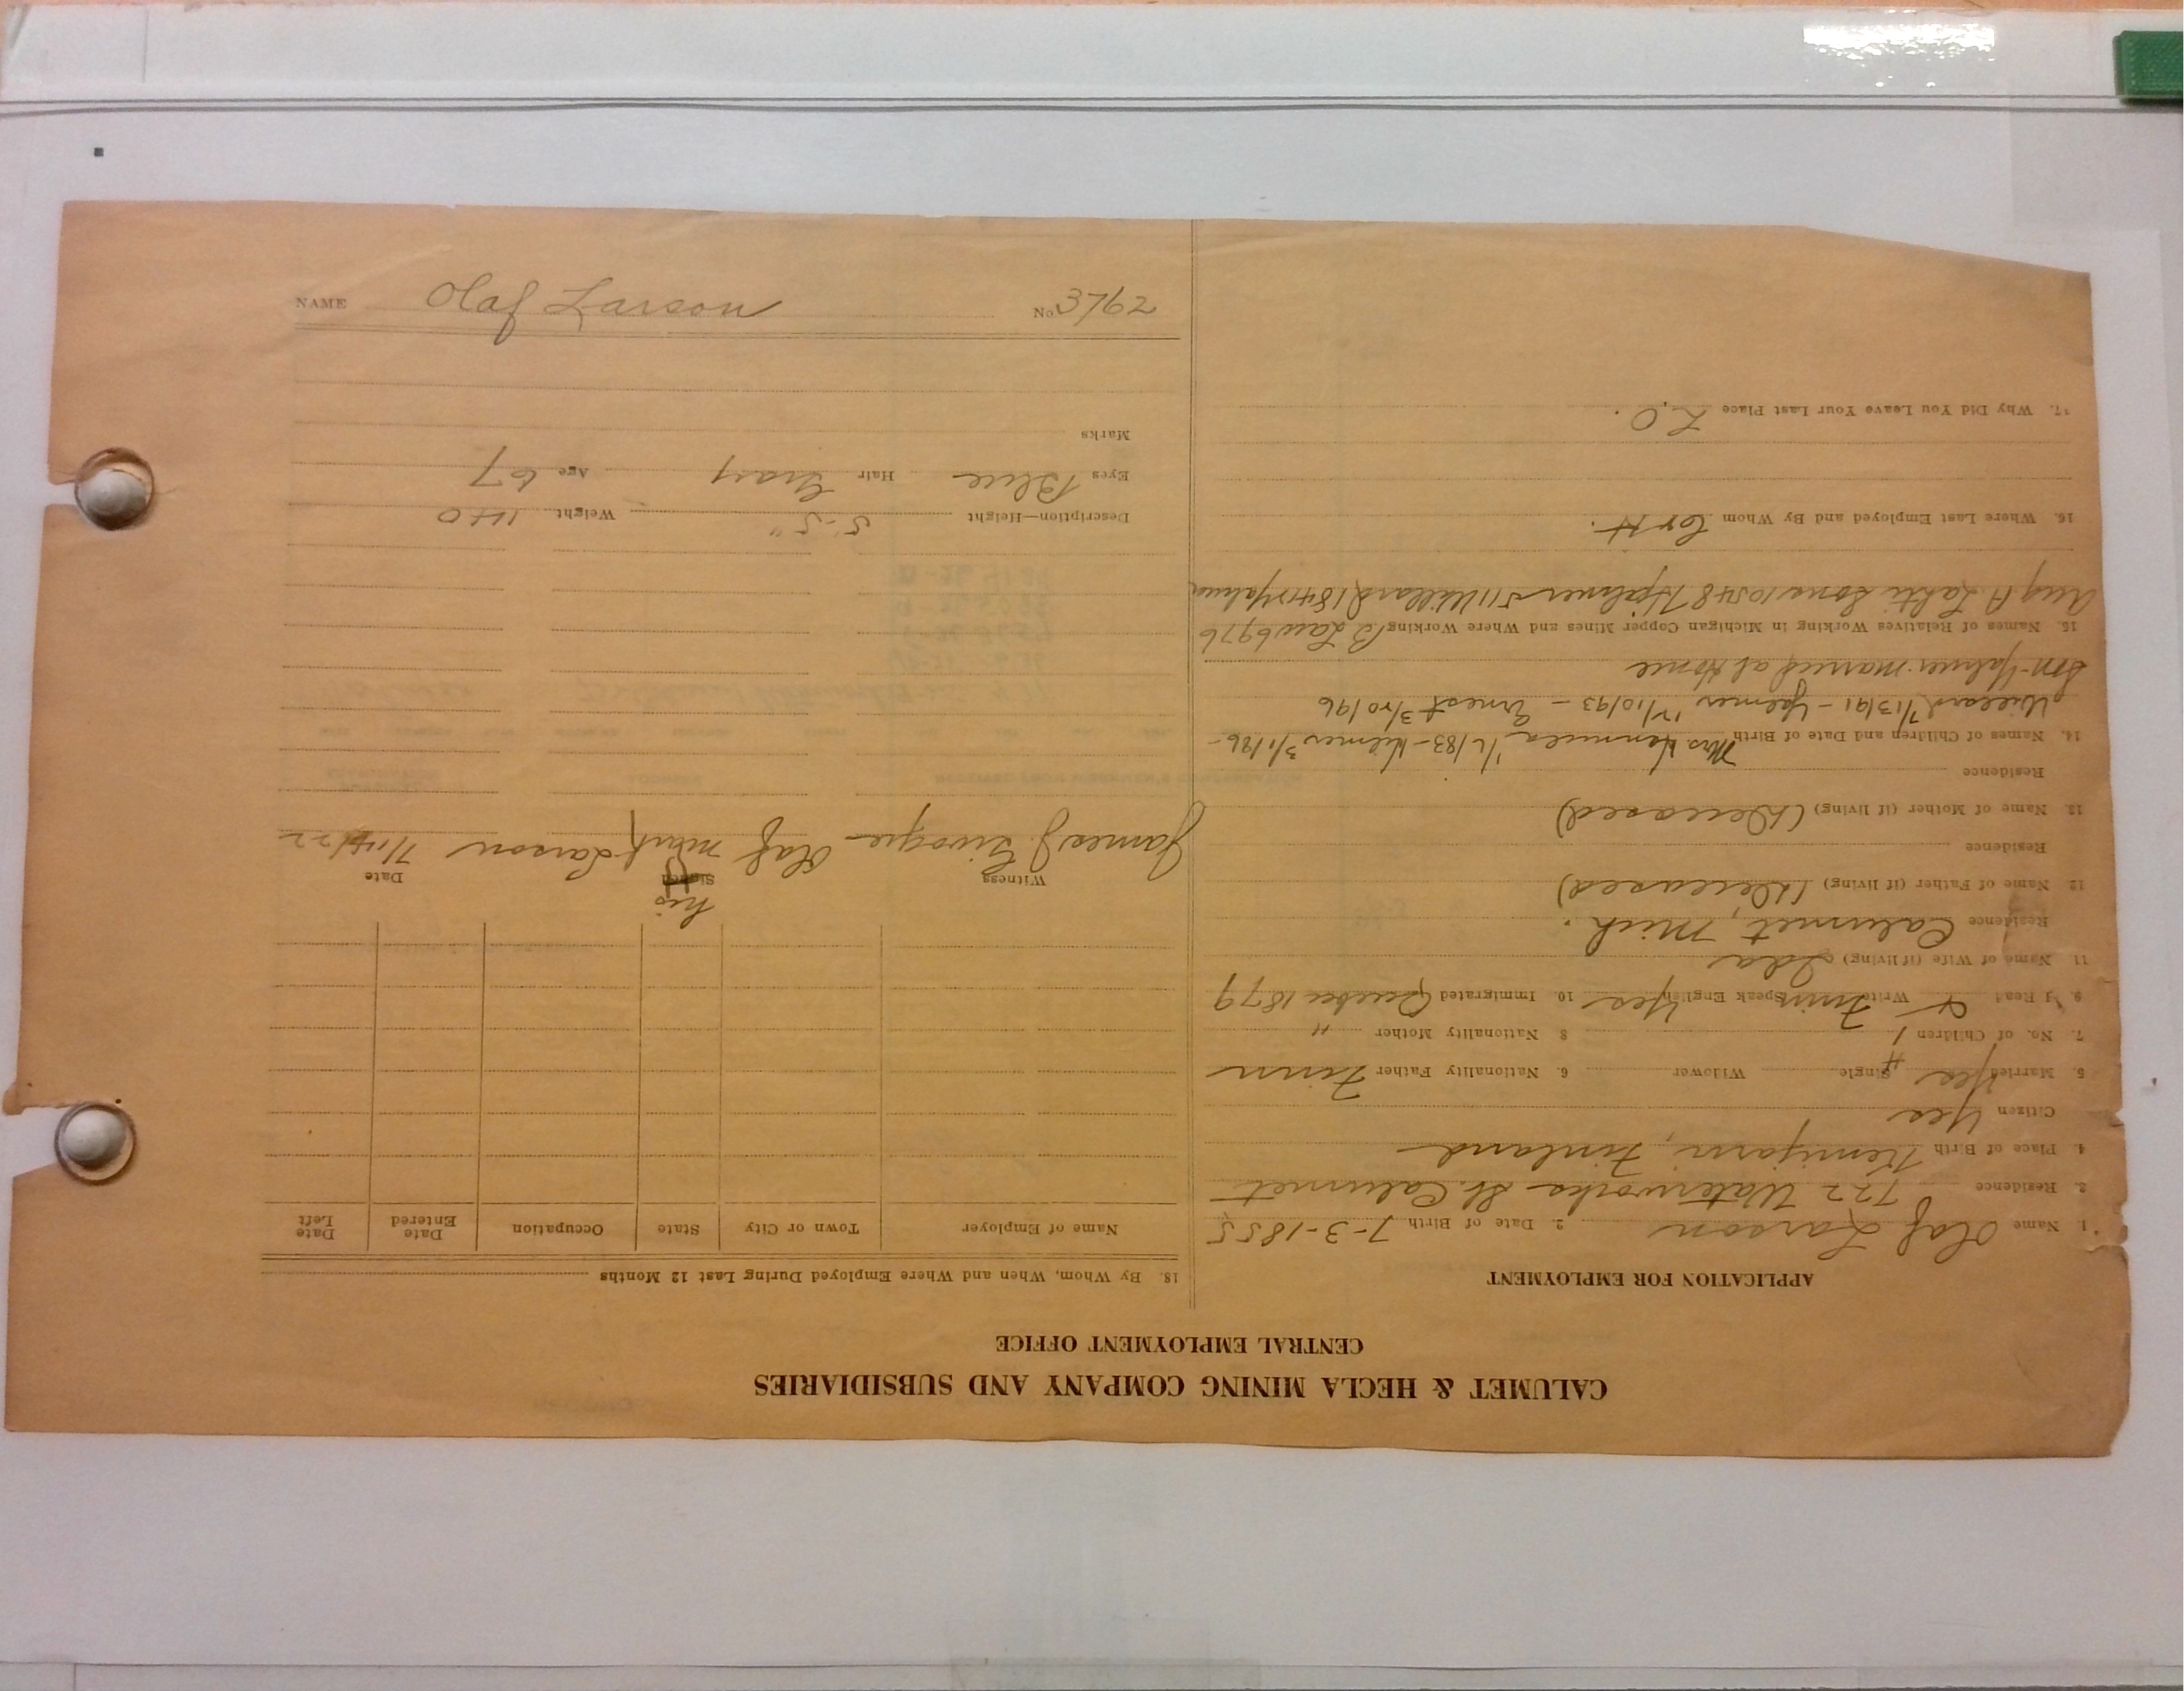 CALUMET & HECLA MINING COMPANY AND SUBSIDIARIES
CENTRAL EMPLOYMENT OFFICE
APPLICATION FOR EMPLOYMENT
1. Name Olaf Larson 2. Date of Birth 7-3-1855
3. Residence 722 Waterworks St. Calumet
4. Place of Birth Kemijarvi, Finland
Citizen Yes
5. Married Yes Single Widower 6. Nationality Father Finn
7. No. of Children 8 Nationality Mother "
9. Read & Write Finn Speak English Yes 10. Immigrated 1879
11. Name of Wife (if living) Ida
Residence Calumet, Mich.
12. Name of Father (if living) (Deceased)
Residence
13. Name of Mother (if living) (Deceased)
Residence
14. Names of Children and Date of Birth Mrs. 1/6/83 - Hilmer 3/1/86 -
Willard 7/13/91 - 12/10/93 - Ernest 3/20/96
married at Home
15. Names of Relatives Working in Michigan Copper Mines and Where Working B Law 6976
Aug A. Lahti Sons 10548 Hjalmer 511 Willard 1841
16. Where Last Employed and By Whom C & H.
17. Why Did You Leave Your Last Place L.O.
18. By Whom, When and Where Employed During Last 12 Months
Name of Employer Town or City State Occupation Date Entered Date Left
his
Witness Signed Date
James J. Olaf mark Larson 7/14/22
Description—Height 5'-5" Weight 140
Eyes Blue Hair Gray Age 67
Marks
NAME Olaf Larson No 3762